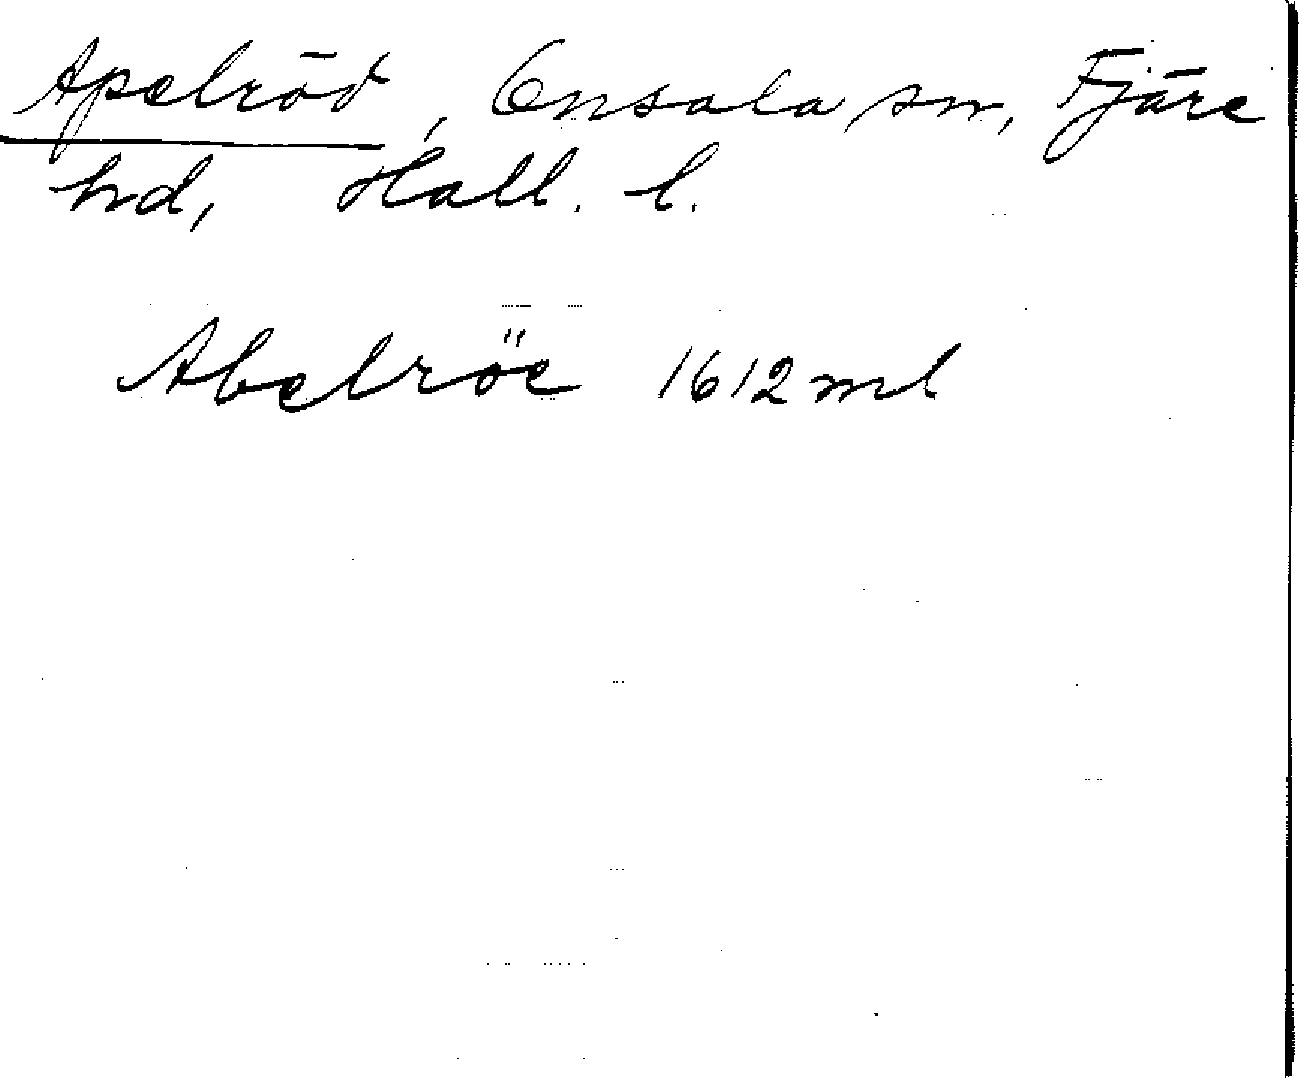 Apelröd, Onsala sn, Fjäre
hd, Hall. l.
Abelröe 1612 ml